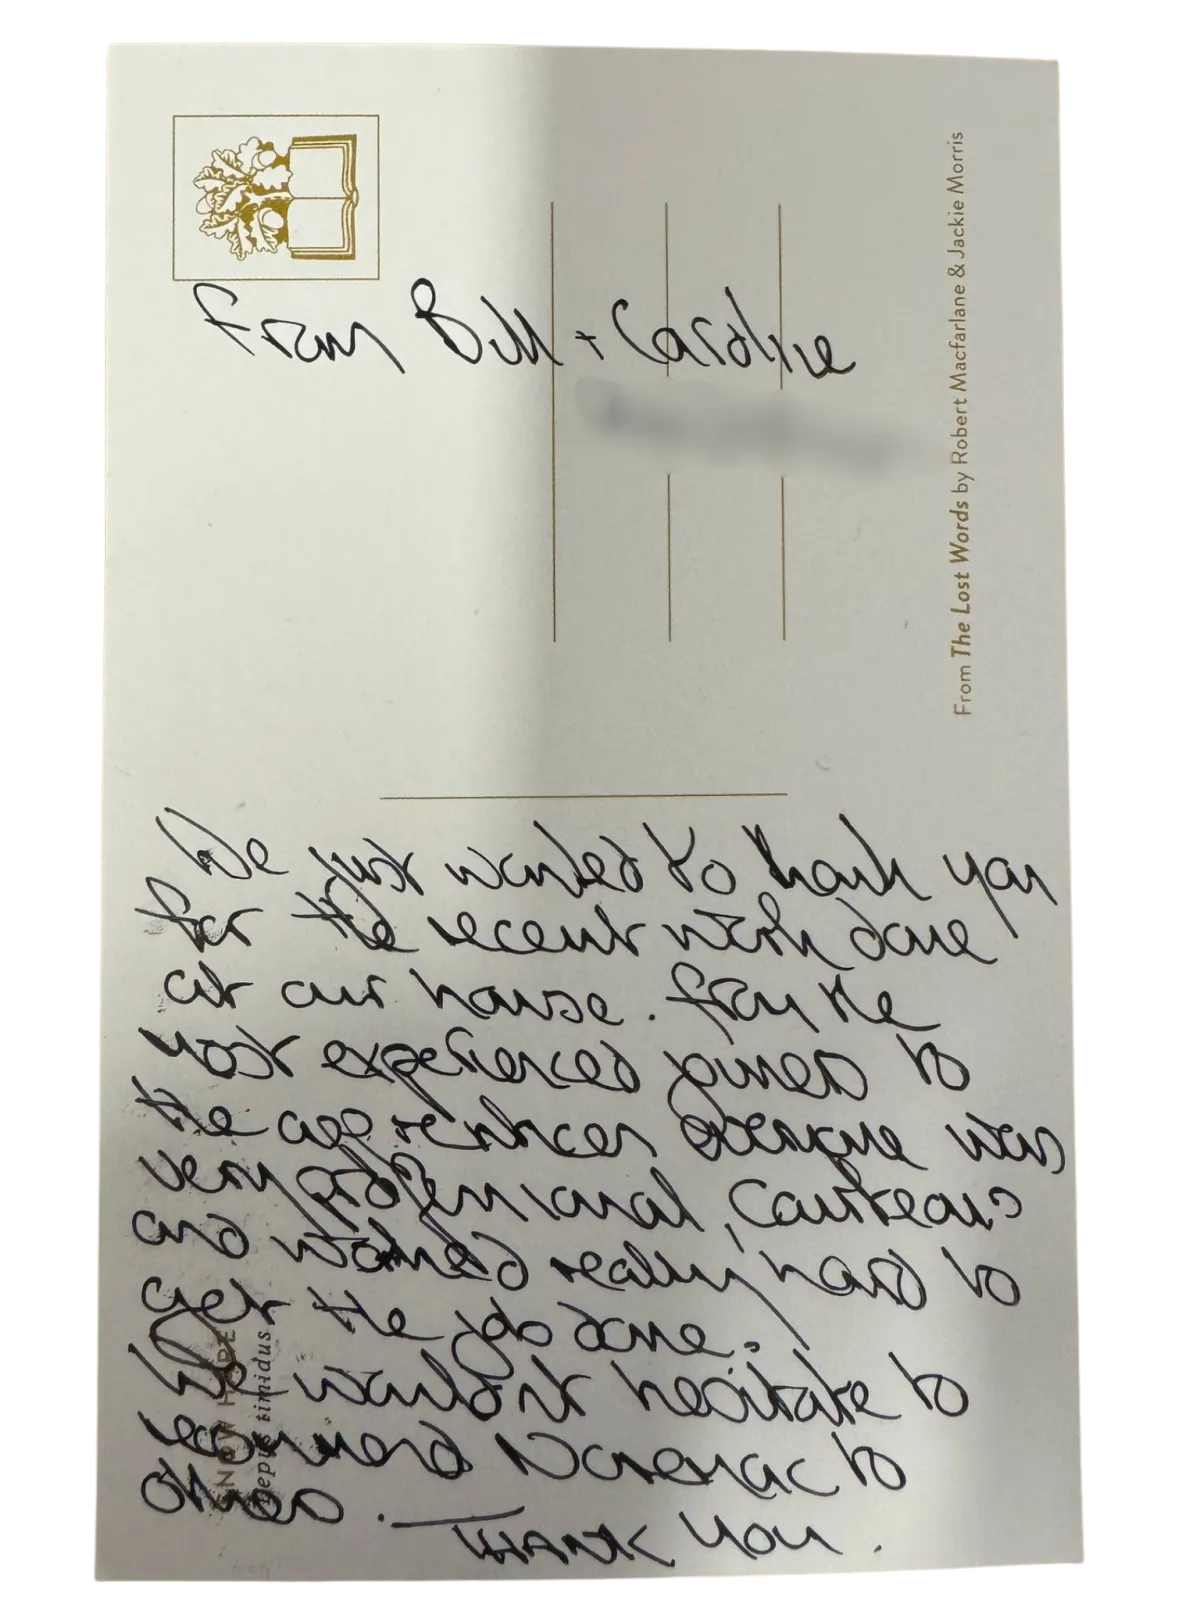 From Bill + Caroline
From The Lost Words by Robert Macfarlane & Jackie Morris
We just wanted to thank you
for the recent work done
at our house. From the
most experienced joiners to
the apprentices everyone was
very professional, courteous
and worked really hard to
get the job done.
We wouldn't hesitate to
recommend to
others.
THANK YOU.
SNOW HARE
Lepus timidus